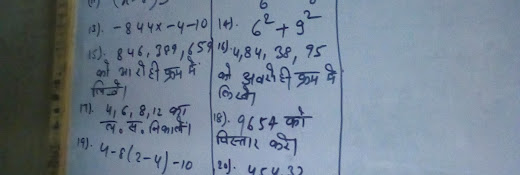 13). -844x-4-10
14). 6²+9²
15). 846, 389, 659
को आरोही क्रम में
लिखे।
16). 4,84, 38, 95
को अवरोही क्रम में
लिखे।
17). 4, 6, 8, 12 का
ल. स. निकालें।
18). 9654 को
विस्तार करे।
19). 4-8(2-4)-10
20).